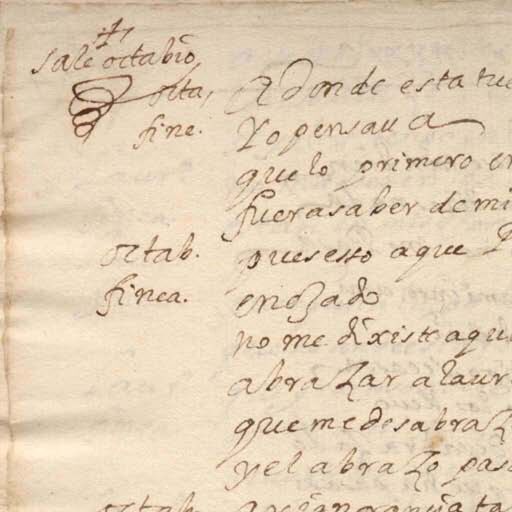 sale octabio,
octa, A donde esta tu
fine. Yo pensaua
que lo primero
fuera saber de mi
octab. pues esto a que
finea. enozado
no me dixiste aqu
abrazar a laur
que me desabraz
y el abrazo pas
octab.